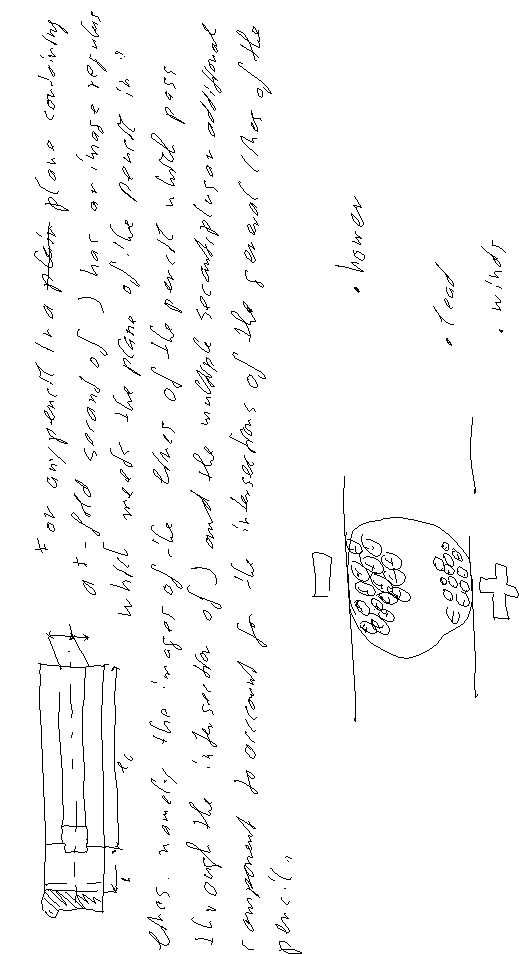 * or any pencil in a plane containing
a t-fold secand of ) has an image regulus
which meets the plane of the pencil in :
lines. namely the images of the lines of the pencil which pass
through the intersection of ) and the multiple secantsplusan additional
component to account for the intersections of the general lines of the
pencil.
• homer
• lead
• winds